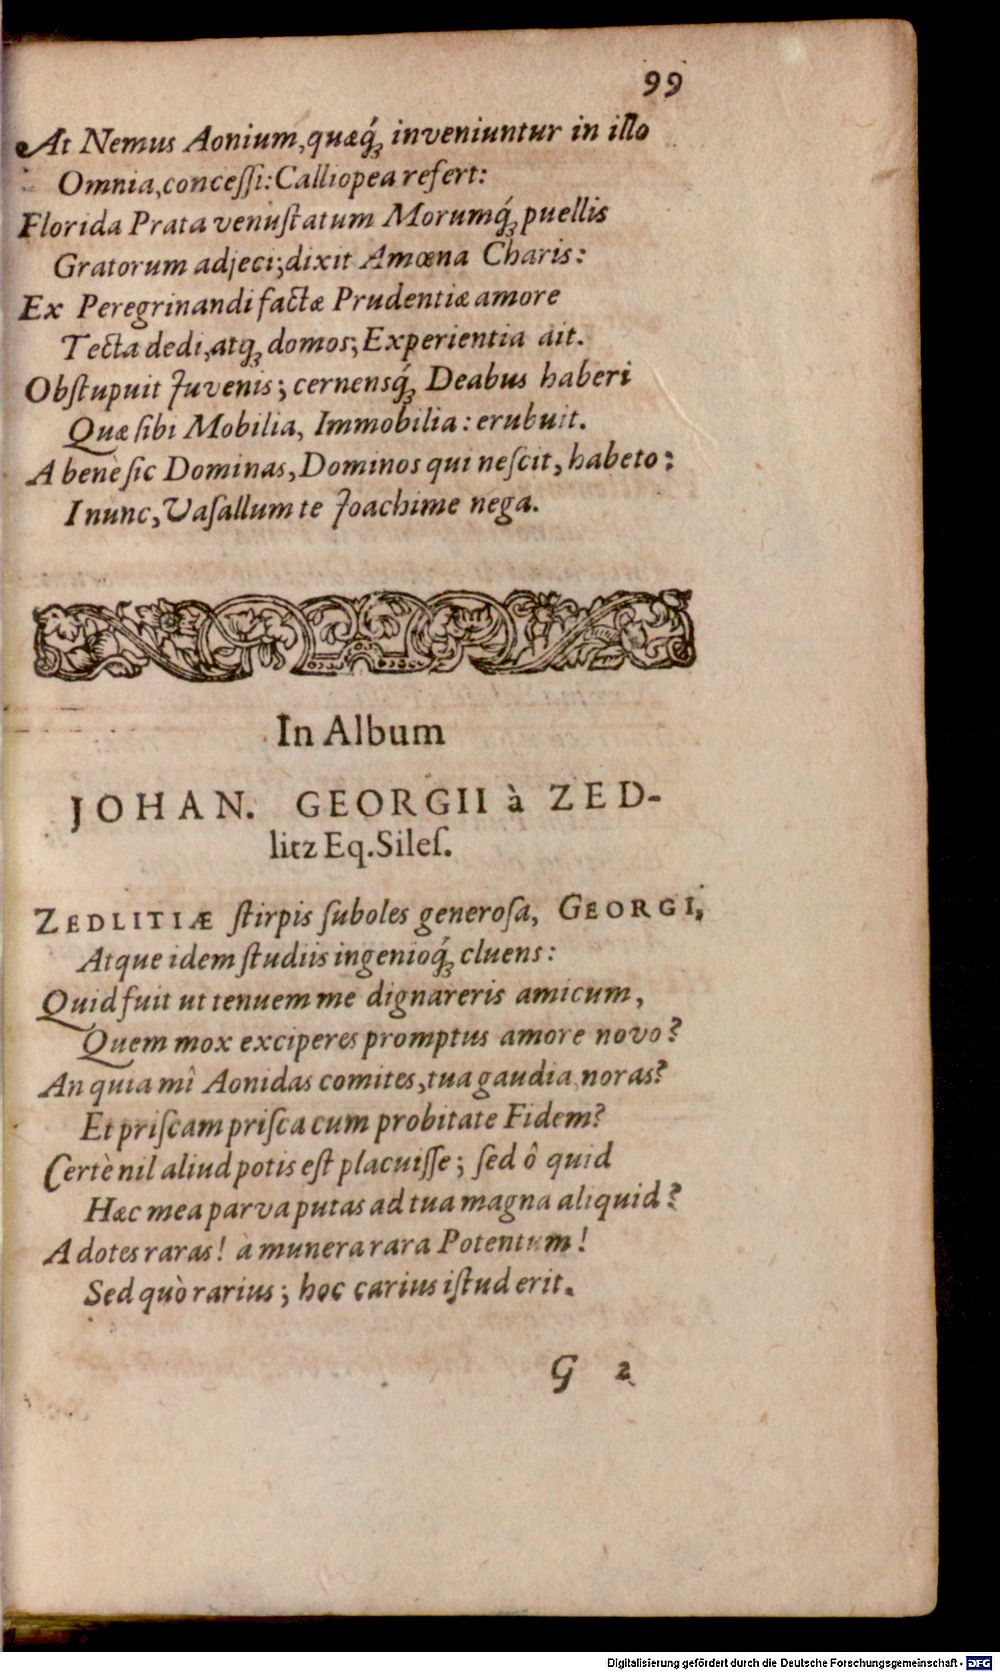 99
At Nemus Aonium, quæq́ꝫ inveniuntur in illo
Omnia, conceſſi: Calliopea refert:
Florida Prata venuſtatum Morumq́ꝫ puellis
Gratorum adjeci; dixit Amœna Charis:
Ex Peregrinandi factæ Prudentiæ amore
Tecta dedi, atqꝫ domos; Experientia ait.
Obſtupuit Juvenis; cernensq́ꝫ Deabus haberi
Quæ ſibi Mobilia, Immobilia: erubuit.
A benè ſic Dominas, Dominos qui neſcit, habeto:
I nunc, Vaſallum te Joachime nega.
In Album
JOHAN. GEORGII à ZED-
litz Eq. Sileſ.
ZEDLITIÆ ſtirpis ſuboles generoſa, GEORGI,
Atque idem ſtudiis ingenioq́ꝫ cluens:
Quid fuit ut tenuem me dignareris amicum,
Quem mox exciperes promptus amore novo?
An quia mî Aonidas comites, tua gaudia, noras?
Et priſcam priſca cum probitate Fidem?
Certè nil aliud potis eſt placuiſſe; ſed ô quid
Hæc mea parva putas ad tua magna aliquid?
A dotes raras! à munera rara Potentum!
Sed quò rarius; hoc carius iſtud erit.
G 2
Digitalisierung gefördert durch die Deutsche Forschungsgemeinschaft - DFG